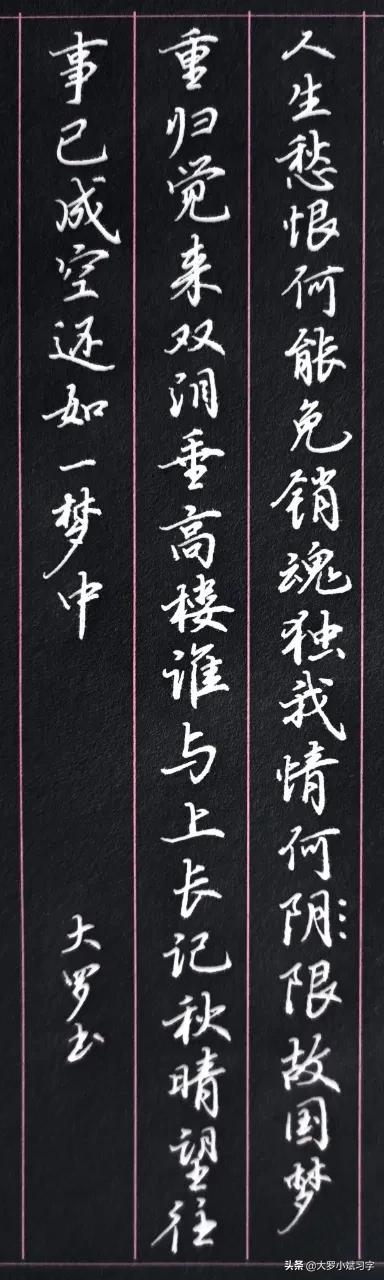 人生愁恨何能免销魂独我情何阴限故国梦
重归觉来双泪垂高楼谁与上长记秋晴望往
事已成空还如一梦中
大罗书
头条 @大罗小斌习字